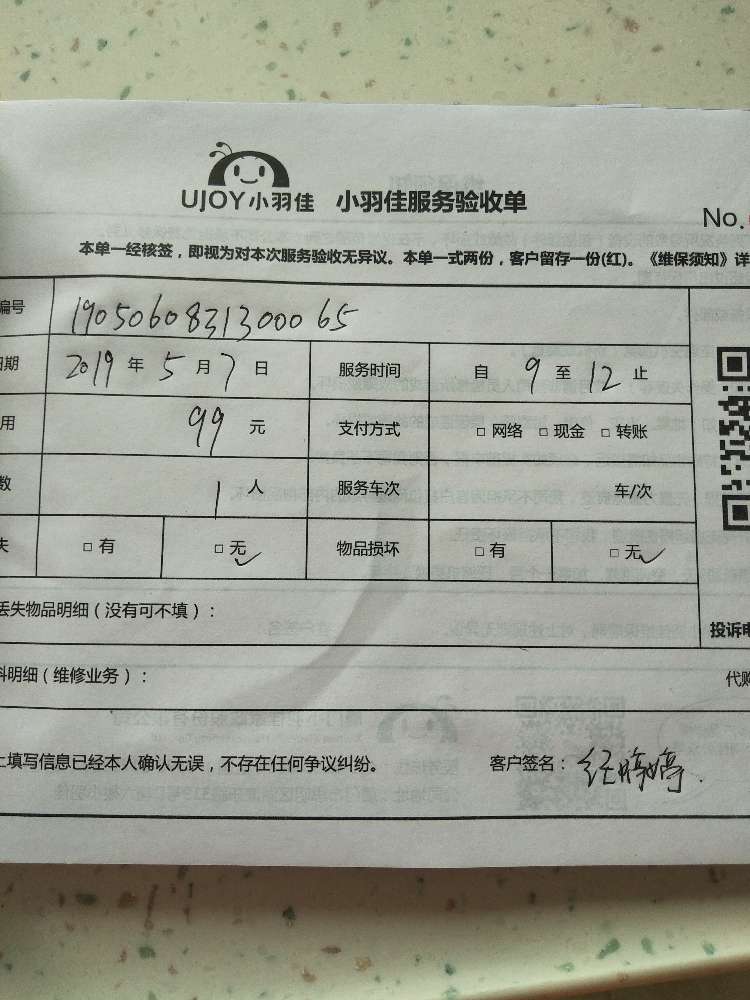 UJOY小羽佳 小羽佳服务验收单
No.
本单一经核签，即视为对本次服务验收无异议。本单一式两份，客户留存一份(红)。《维保须知》详
编号 1905060831300065
日期 2019 年 5 月 7 日 服务时间 自 9 至 12 止
用 99 元 支付方式 □ 网络 □ 现金 □ 转账
数 1 人 服务车次 车/次
失 □ 有 □ 无 ✓ 物品损坏 □ 有 □ 无 ✓
丢失物品明细（没有可不填）：
投诉电
料明细（维修业务）：
代购
上填写信息已经本人确认无误，不存在任何争议纠纷。 客户签名：经婷婷